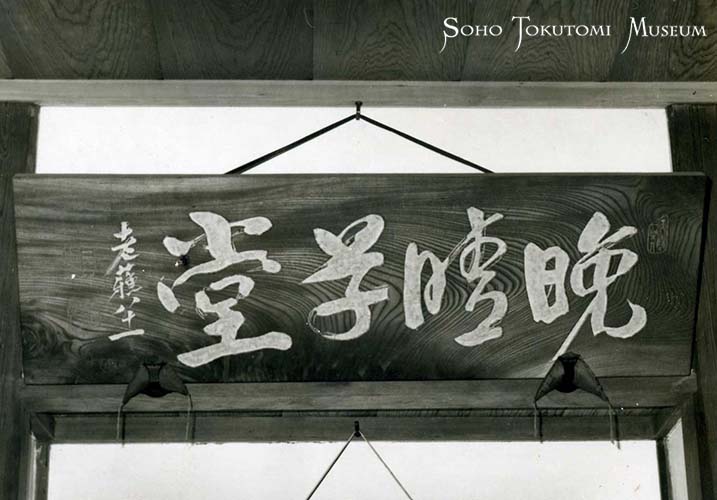 SOHO TOKUTOMI MUSEUM
晩晴草堂
老蘇八十一